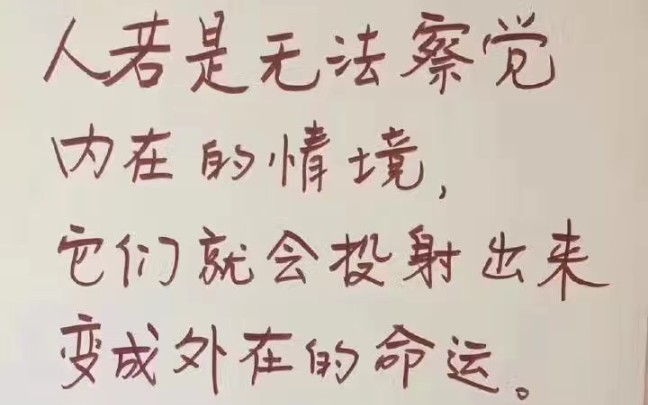 人若是无法察觉
内在的情境,
它们就会投射出来
变成外在的命运。